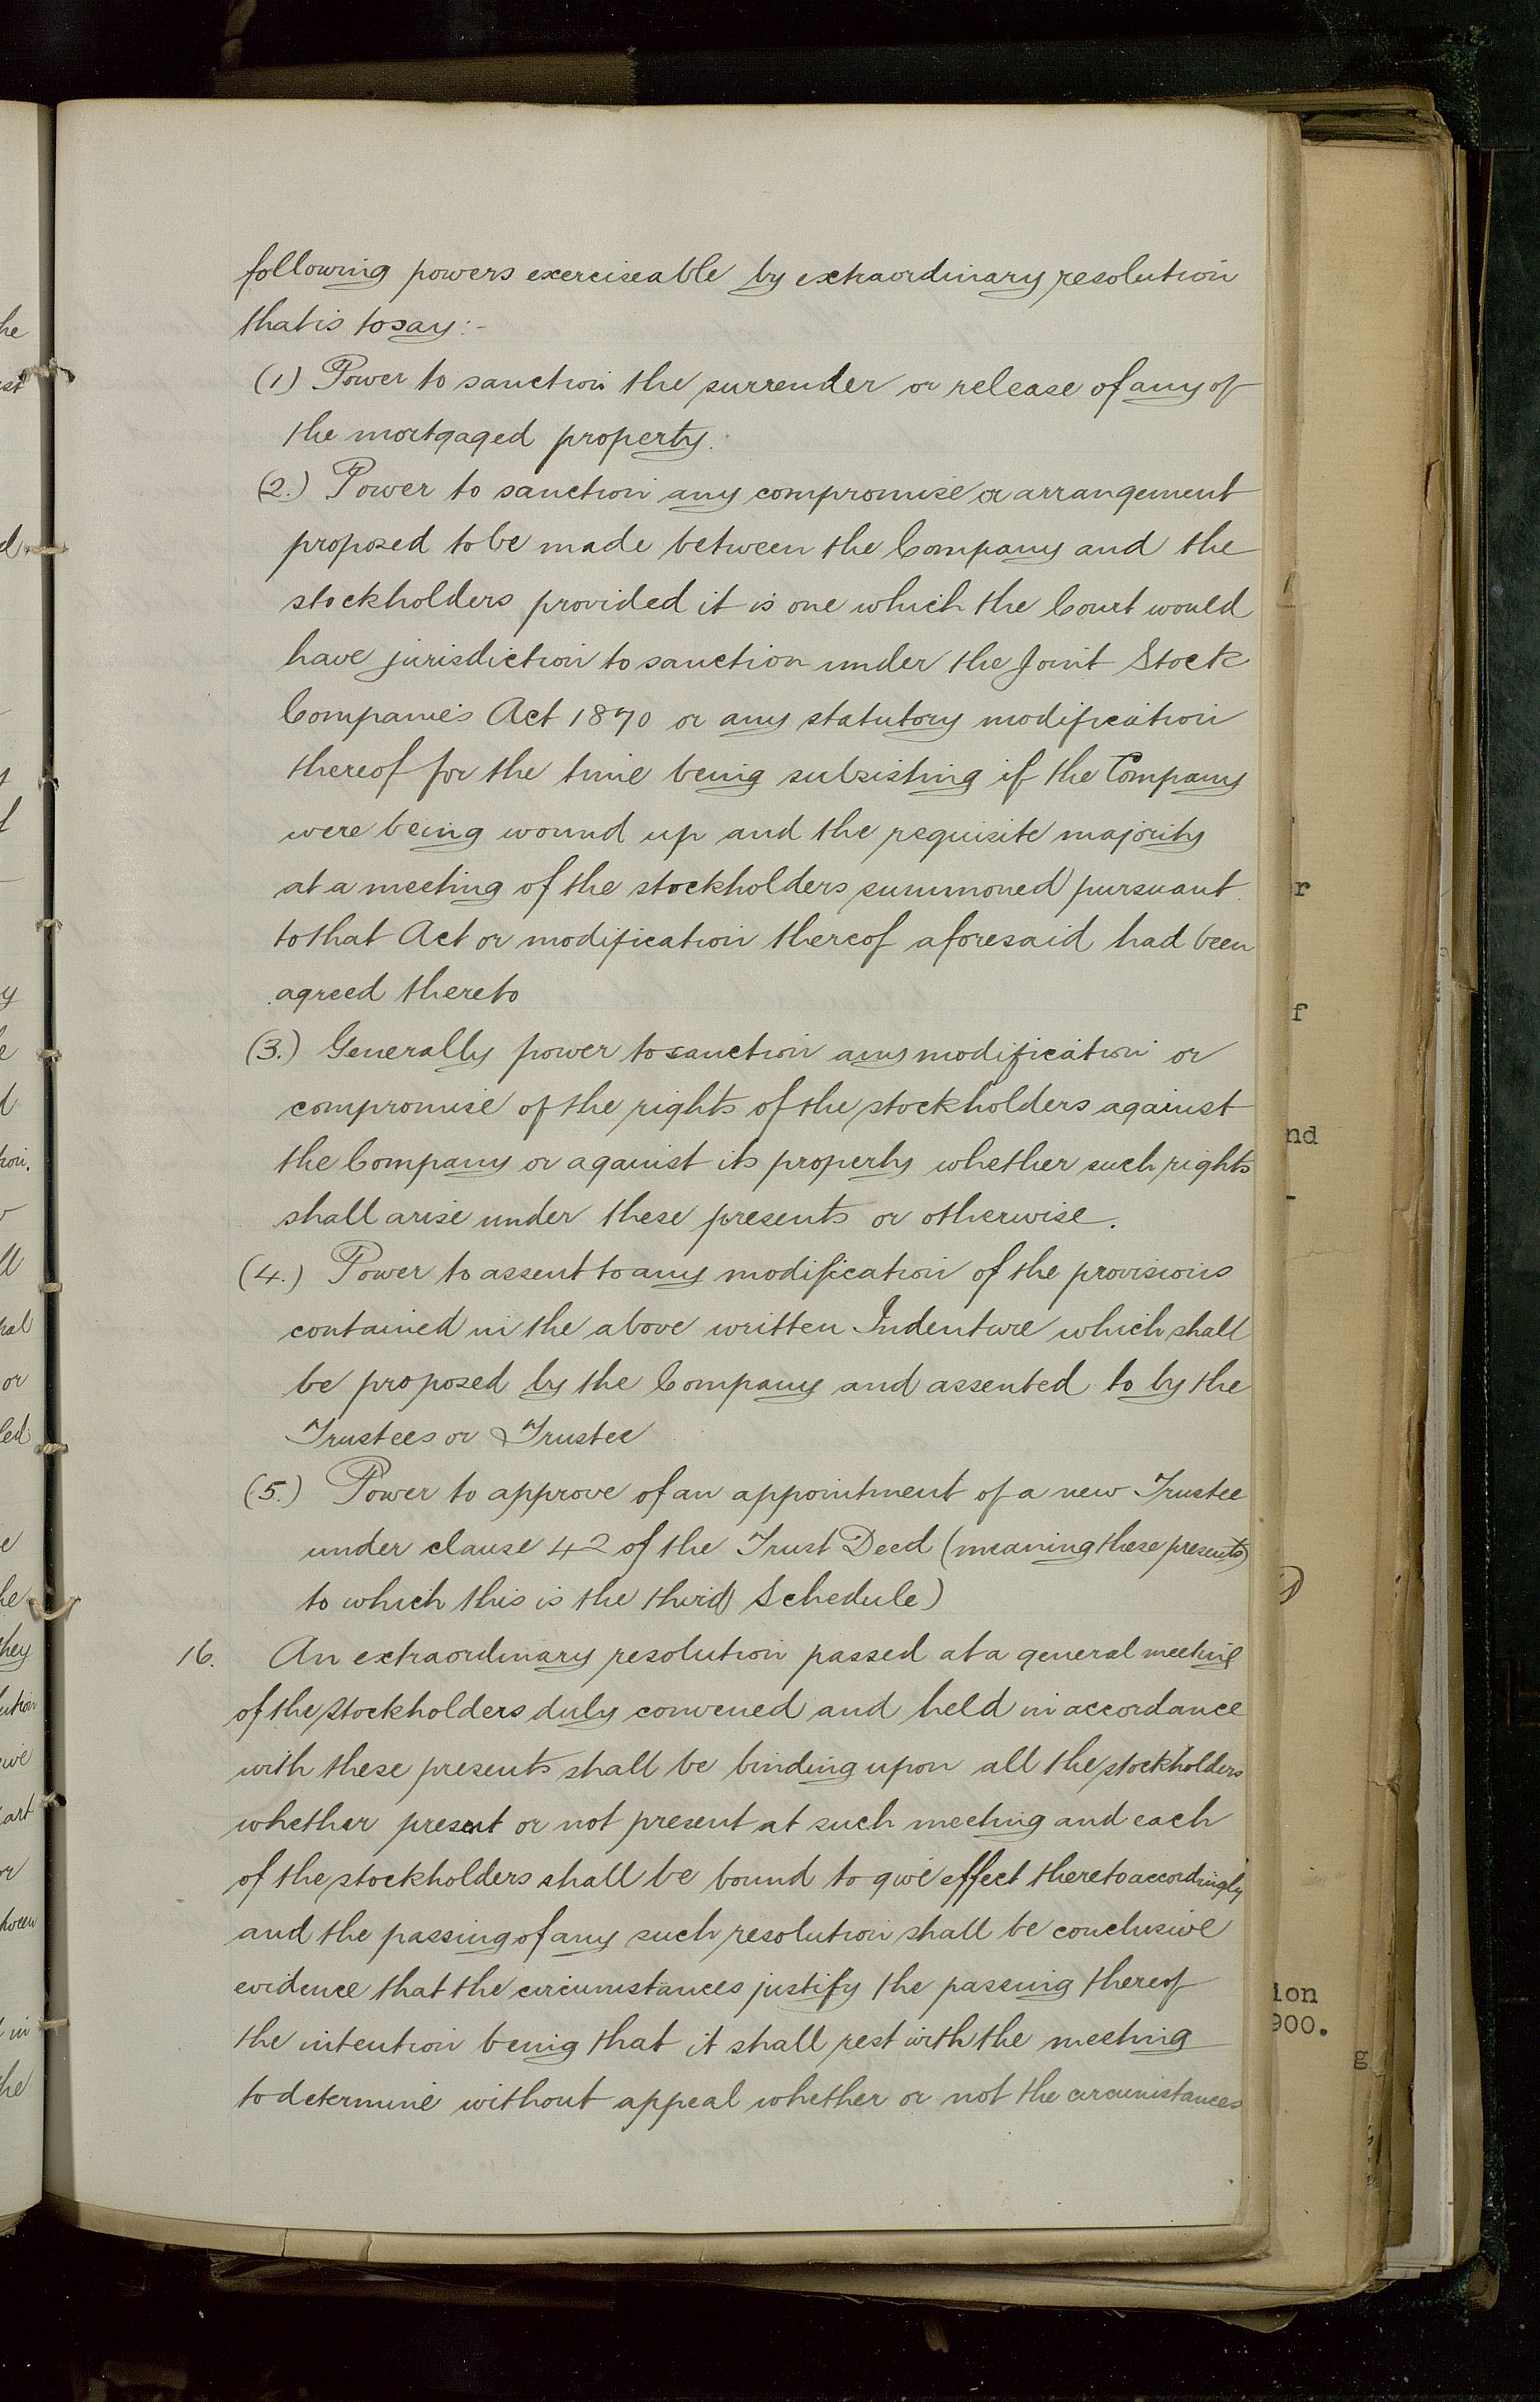 following powers exerciseable by extraordinary resolution
that is to say:-
(1) Power to sanction the surrender or release of any of
the mortgaged property.
(2.) Power to sanction any compromise or arrangement
proposed to be made between the Company and the
stockholders provided it is one which the Court would
have jurisdiction to sanction under the Joint Stock
Companies Act 1870 or any statutory modification
thereof for the time being subsisting if the Company
were being wound up and the requisite majority
at a meeting of the stockholders summoned pursuant
to that Act or modification thereof aforesaid had been
agreed thereto
(3.) Generally power to sanction any modification or
compromise of the rights of the stockholders against
the Company or against its property whether such rights
shall arise under these presents or otherwise.
(4.) Power to assent to any modification of the provisions
contained in the above written Indenture which shall
be proposed by the Company and assented to by the
Trustees or Trustee
(5.) Power to approve of an appointment of a new Trustee
under clause 42 of the Trust Deed (meaning these presents)
to which this is the third Schedule)
16. An extraordinary resolution passed at a general meeting
of the stockholders duly convened and held in accordance
with these presents shall be binding upon all the stockholders
whether present or not present at such meeting and each
of the stockholders shall be bound to give effect thereto accordingly
and the passing of any such resolution shall be conclusive
evidence that the circumstances justify the passing thereof
the intention being that it shall rest with the meeting
to determine without appeal whether or not the circumstances